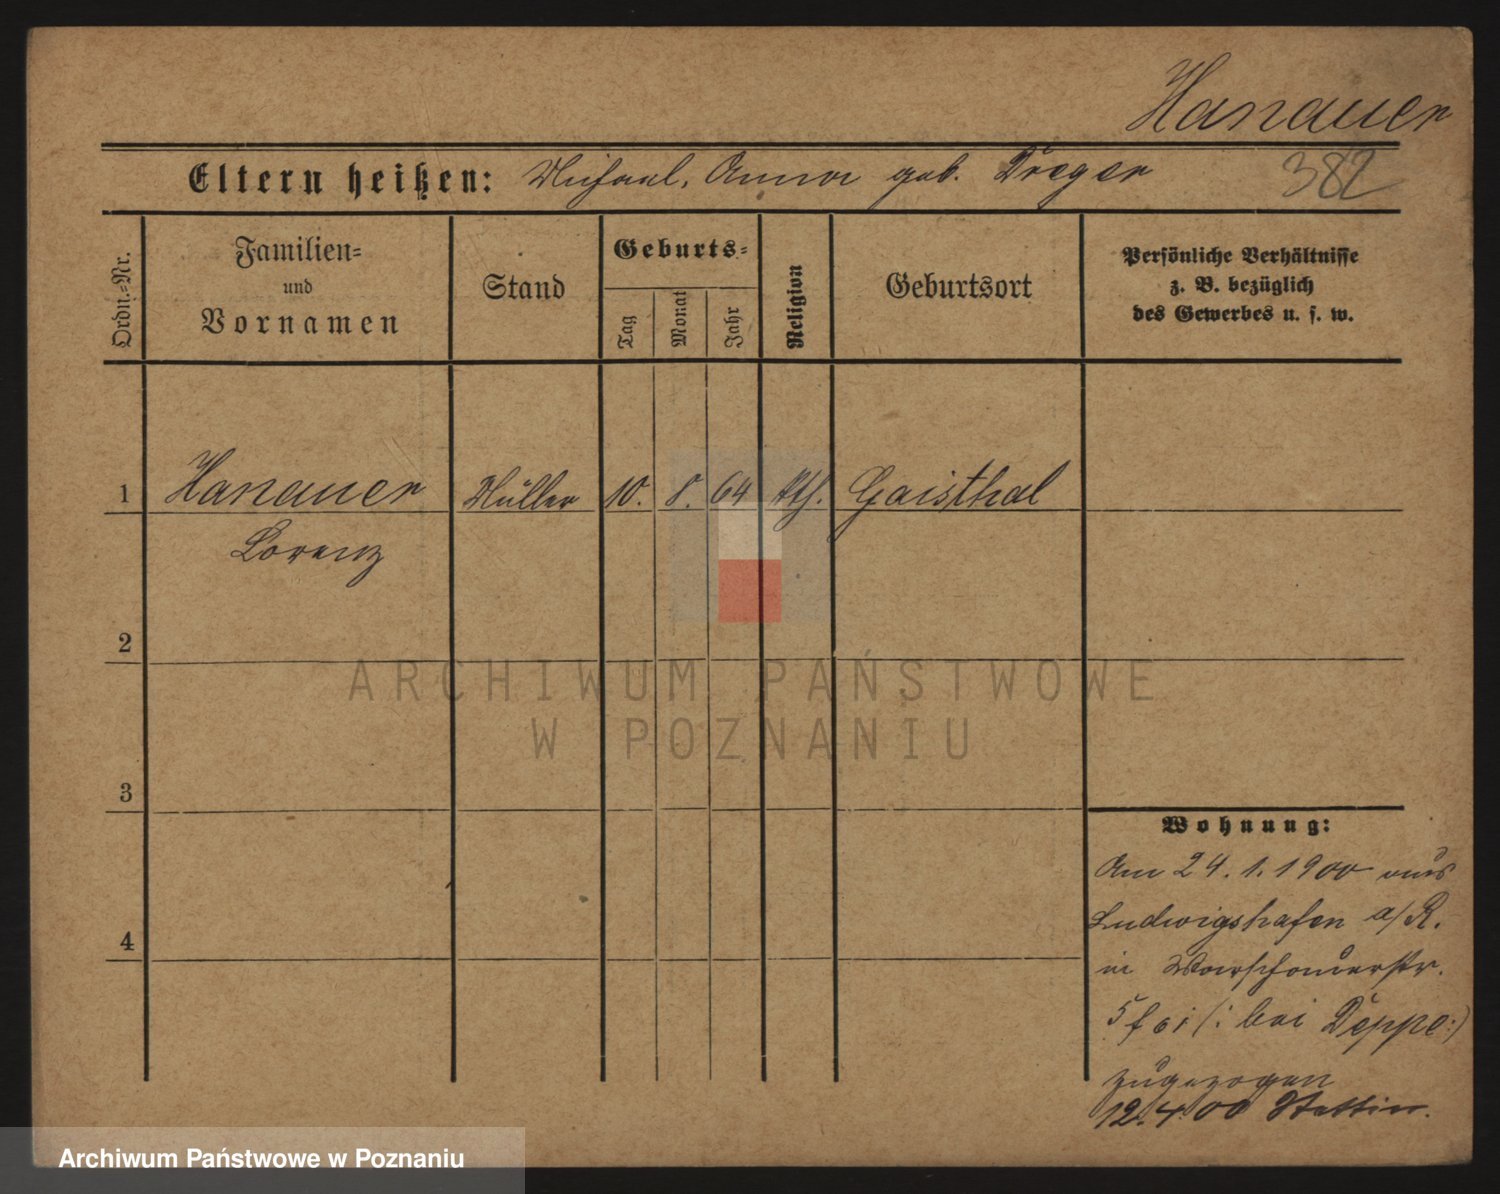 Hanauer
Eltern heißen: Michael, Anna geb. Dreger
382
Ordn.-Nr.
Familien-
und
Vornamen
Stand
Geburts-
Tag
Monat
Jahr
Religion
Geburtsort
Persönliche Verhältnisse
z. B. bezüglich
des Gewerbes u. s. w.
1 Hanauer Müller 10. 8. 64 kth. Gaisthal
Lorenz
2
3
4
Wohnung:
Am 24.1.1900 aus
Ludwigshafen a/R.
in Warschauerstr.
5 bei Deppe:)
zugezogen
12.4.00 Stettin.
ARCHIWUM PAŃSTWOWE
W POZNANIU
Archiwum Państwowe w Poznaniu